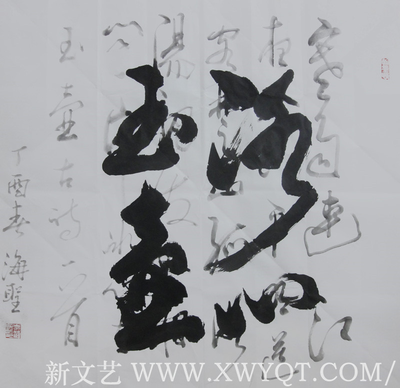 冰心
玉壶
寒雨連江
夜入吴平明送
客楚山孤洛
陽親友如相
問一片冰心在
玉壶古诗一首
丁酉春 海聖
新文艺 / WWW.XWYQT.COM